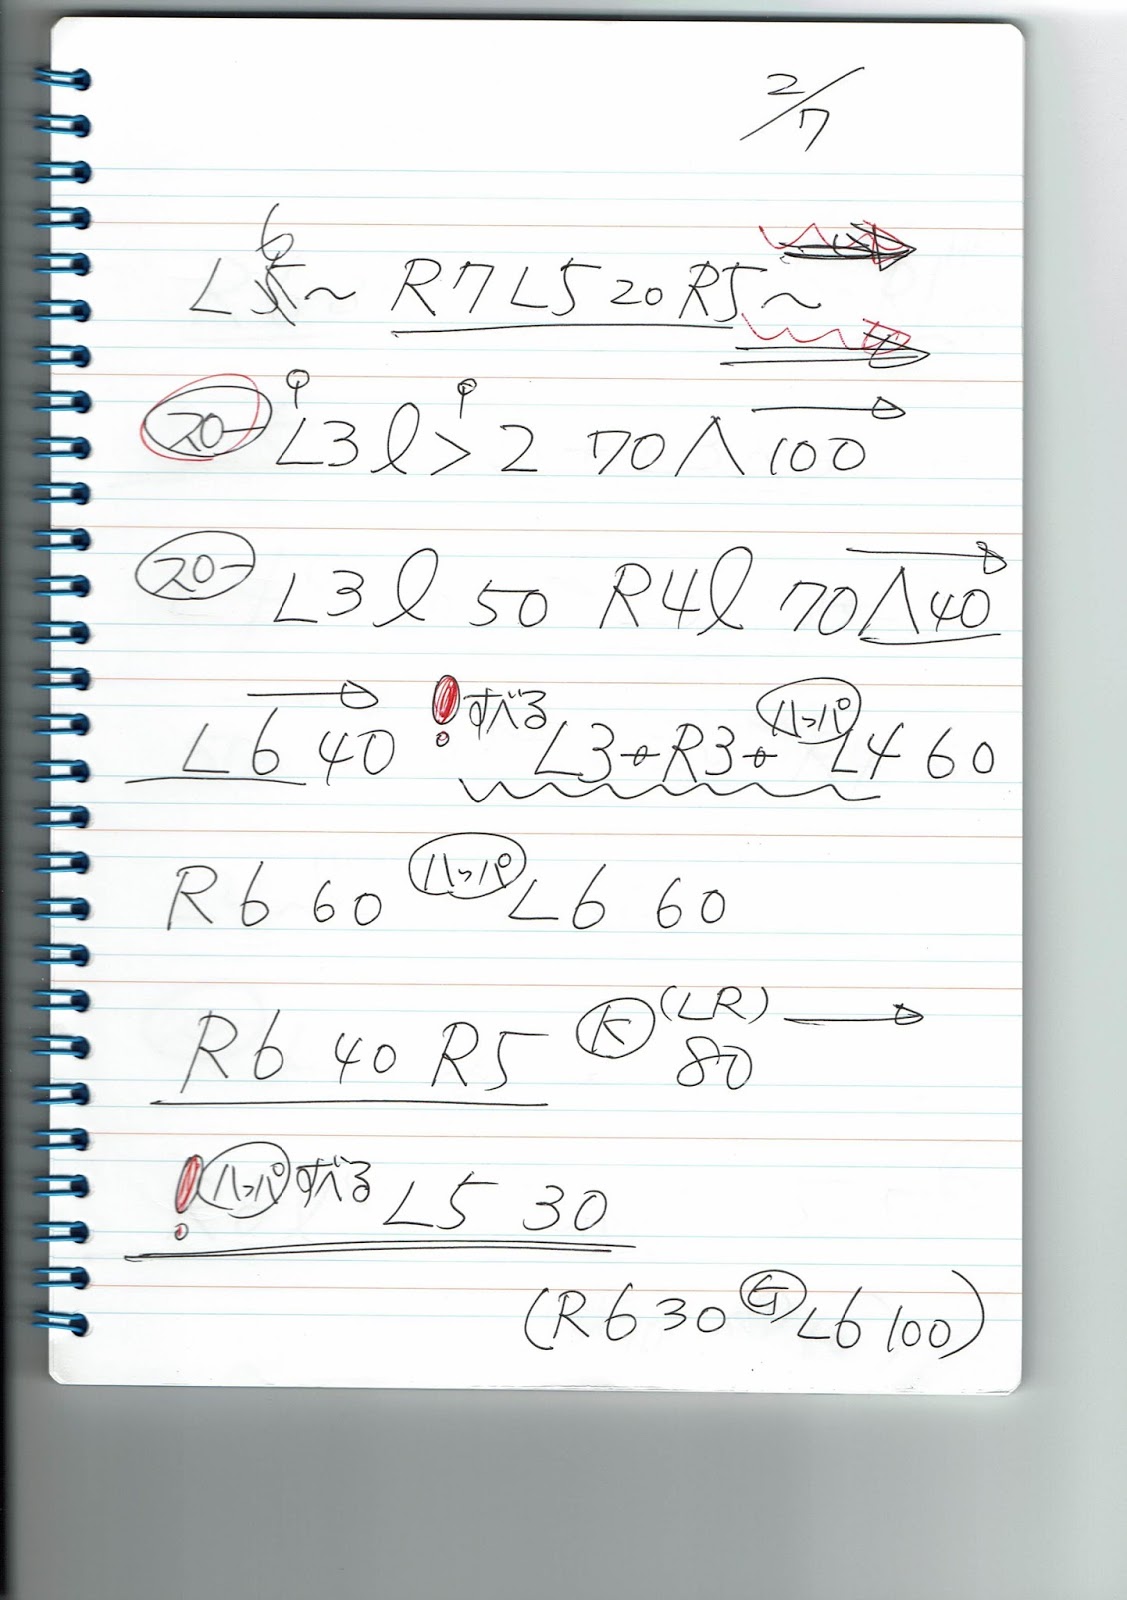 2/7
L6~ R7 L5 20 R5~
スロー L3 l > 2 70 ∧ 100
スロー L3 l 50 R4 l 70 ∧ 40
L6 40 ! すべる L3+R3+ ハッパ L4 60
R6 60 ハッパ L6 60
R6 40 R5 K (LR) 80
! ハッパ すべる L5 30
(R6 30 G L6 100)